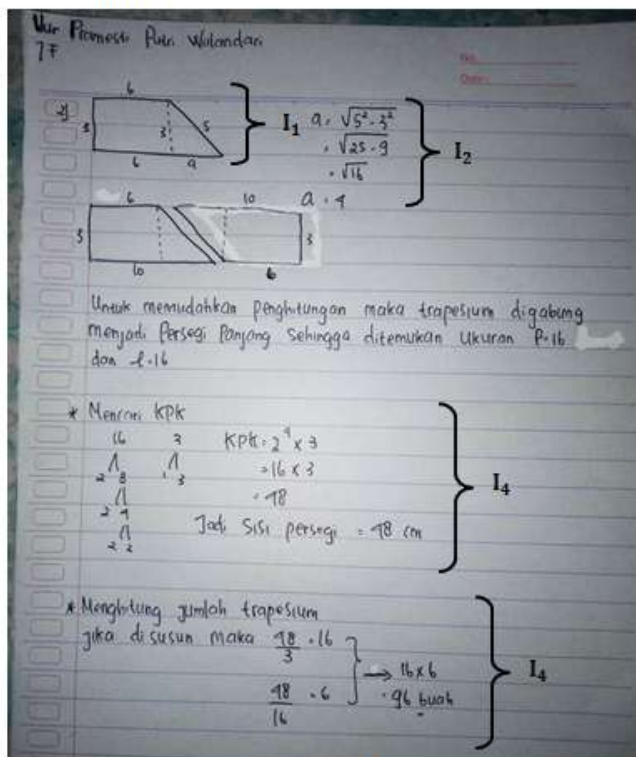 Nur Pramesti Putri Wulandari
7F
No.
Date:
2)
6
3 3 5
6 a
I1
a = √5² - 3²
= √25 - 9
= √16
a = 4
I2
6 10
3 3
10 6
Untuk memudahkan penghitungan maka trapesium digabung
menjadi Persegi Panjang sehingga ditemukan Ukuran P=16
dan l=16
* Mencari KPK
16 3 KPK = 2⁴ x 3
2 8 1 3 = 16 x 3
2 4 = 48
2 2 Jadi Sisi persegi = 48 cm
I4
* Menghitung jumlah trapesium
jika disusun maka 48/3 = 16
48/16 = 6
→ 16 x 6
= 96 buah
I4